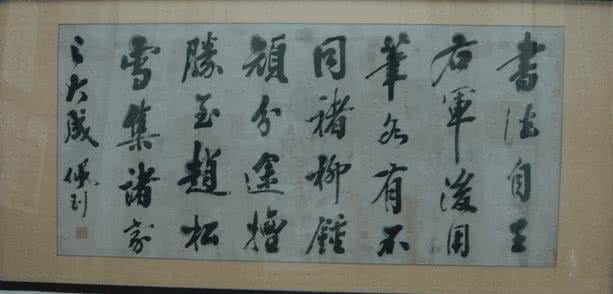 書法自王
右軍後用
筆各有不
同褚柳鍾
顏分途擅
勝至趙松
雪集諸家
之大成 佩